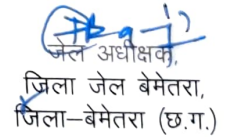 जेल अधीक्षक,
जिला जेल बेमेतरा,
जिला–बेमेतरा (छ.ग.)